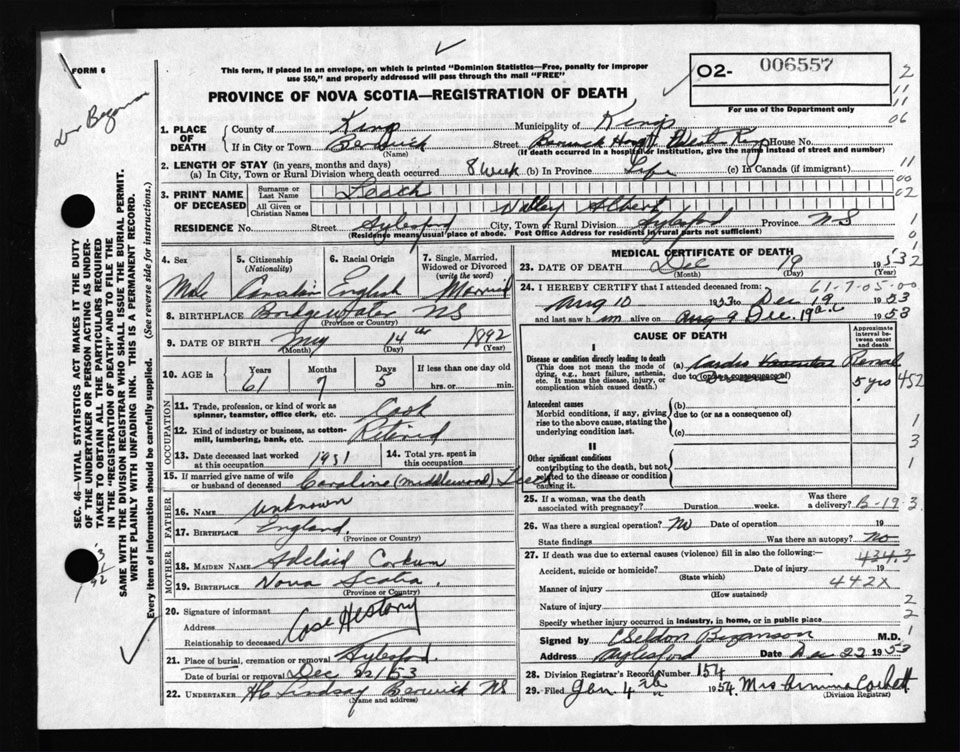 FORM 6
This form, if placed in an envelope, on which is printed "Dominion Statistics—Free, penalty for improper
use $50," and properly addressed will pass through the mail "FREE"
PROVINCE OF NOVA SCOTIA—REGISTRATION OF DEATH
02- 006557
For use of the Department only
2
11
11
06
1. PLACE OF DEATH County of Kings Municipality of Kings
If in City or Town Berwick Street Berwick Hosp House No.
(Name) (If death occurred in a hospital or institution, give the name instead of street and number)
2. LENGTH OF STAY (in years, months and days)
(a) In City, Town or Rural Division where death occurred 8 Week (b) In Province Life (c) In Canada (if immigrant)
11
00
02
3. PRINT NAME OF DECEASED Surname or Last Name Leach
All Given or Christian Names Albert
RESIDENCE No. Street Aylesford City, Town or Rural Division Aylesford Province NS
(Residence means usual place of abode. Post Office Address for residents in rural parts not sufficient)
1
0
1
4. Sex
Male
5. Citizenship (Nationality)
Canadian
6. Racial Origin
English
7. Single, Married, Widowed or Divorced (write the word)
Married
8. BIRTHPLACE Bridgewater NS
(Province or Country)
9. DATE OF BIRTH May 14th 1892
(Month) (Day) (Year)
10. AGE in Years 61 Months 7 Days 5 If less than one day old
hrs. or min.
OCCUPATION
11. Trade, profession, or kind of work as spinner, teamster, office clerk, etc. Cook
12. Kind of industry or business, as cotton-mill, lumbering, bank, etc. Retired
13. Date deceased last worked at this occupation 1951
14. Total yrs. spent in this occupation
15. If married give name of wife or husband of deceased Caroline (Middlewood) Leach
FATHER
16. Name Unknown
17. Birthplace England
(Province or Country)
MOTHER
18. MAIDEN NAME Adelaid Corkum
19. BIRTHPLACE Nova Scotia
(Province or Country)
20. Signature of informant
Address
Relationship to deceased
Case History
21. Place of burial, cremation or removal Aylesford
Date of burial or removal Dec 22/53
22. UNDERTAKER Lindsay Berwick NS
(Name and address)
MEDICAL CERTIFICATE OF DEATH
23. DATE OF DEATH Dec 19 1953
(Month) (Day) (Year)
61-7-05-00
24. I HEREBY CERTIFY that I attended deceased from:
Aug 10 1953 to Dec 19 1953
and last saw him alive on Dec. 19 1953
CAUSE OF DEATH
Approximate interval between onset and death
I
Disease or condition directly leading to death
(This does not mean the mode of dying, e.g., heart failure, asthenia, etc. It means the disease, injury, or complication which caused death.)
(a) Renal
due to (or as a consequence of)
5 yrs 452
Antecedent causes
Morbid conditions, if any, giving rise to the above cause, stating the underlying condition last.
(b)
due to (or as a consequence of)
(c)
1
3
II
Other significant conditions
contributing to the death, but not related to the disease or condition causing it.
1
25. If a woman, was the death associated with pregnancy? Duration weeks. Was there a delivery? B-19-3
26. Was there a surgical operation? No Date of operation 19
State findings Was there an autopsy? No
27. If death was due to external causes (violence) fill in also the following:—
434.3
Accident, suicide or homicide? Date of injury 19
(State which)
Manner of injury 442X
(How sustained)
Nature of injury 2
Specify whether injury occurred in industry, in home, or in public place 2
Signed by Bezanson M.D.
Address Aylesford Date Dec 22 1953
28. Division Registrar's Record Number 154
29. Filed Jan 4th 1954 Mrs
(Division Registrar)
SEC. 46—VITAL STATISTICS ACT MAKES IT THE DUTY
OF THE UNDERTAKER OR PERSON ACTING AS UNDER-
TAKER TO OBTAIN ALL THE PARTICULARS REQUIRED
IN THE "REGISTRATION OF DEATH" AND TO FILE THE
SAME WITH THE DIVISION REGISTRAR WHO SHALL ISSUE THE BURIAL PERMIT.
WRITE PLAINLY WITH UNFADING INK. THIS IS A PERMANENT RECORD.
Every item of information should be carefully supplied. (See reverse side for instructions.)